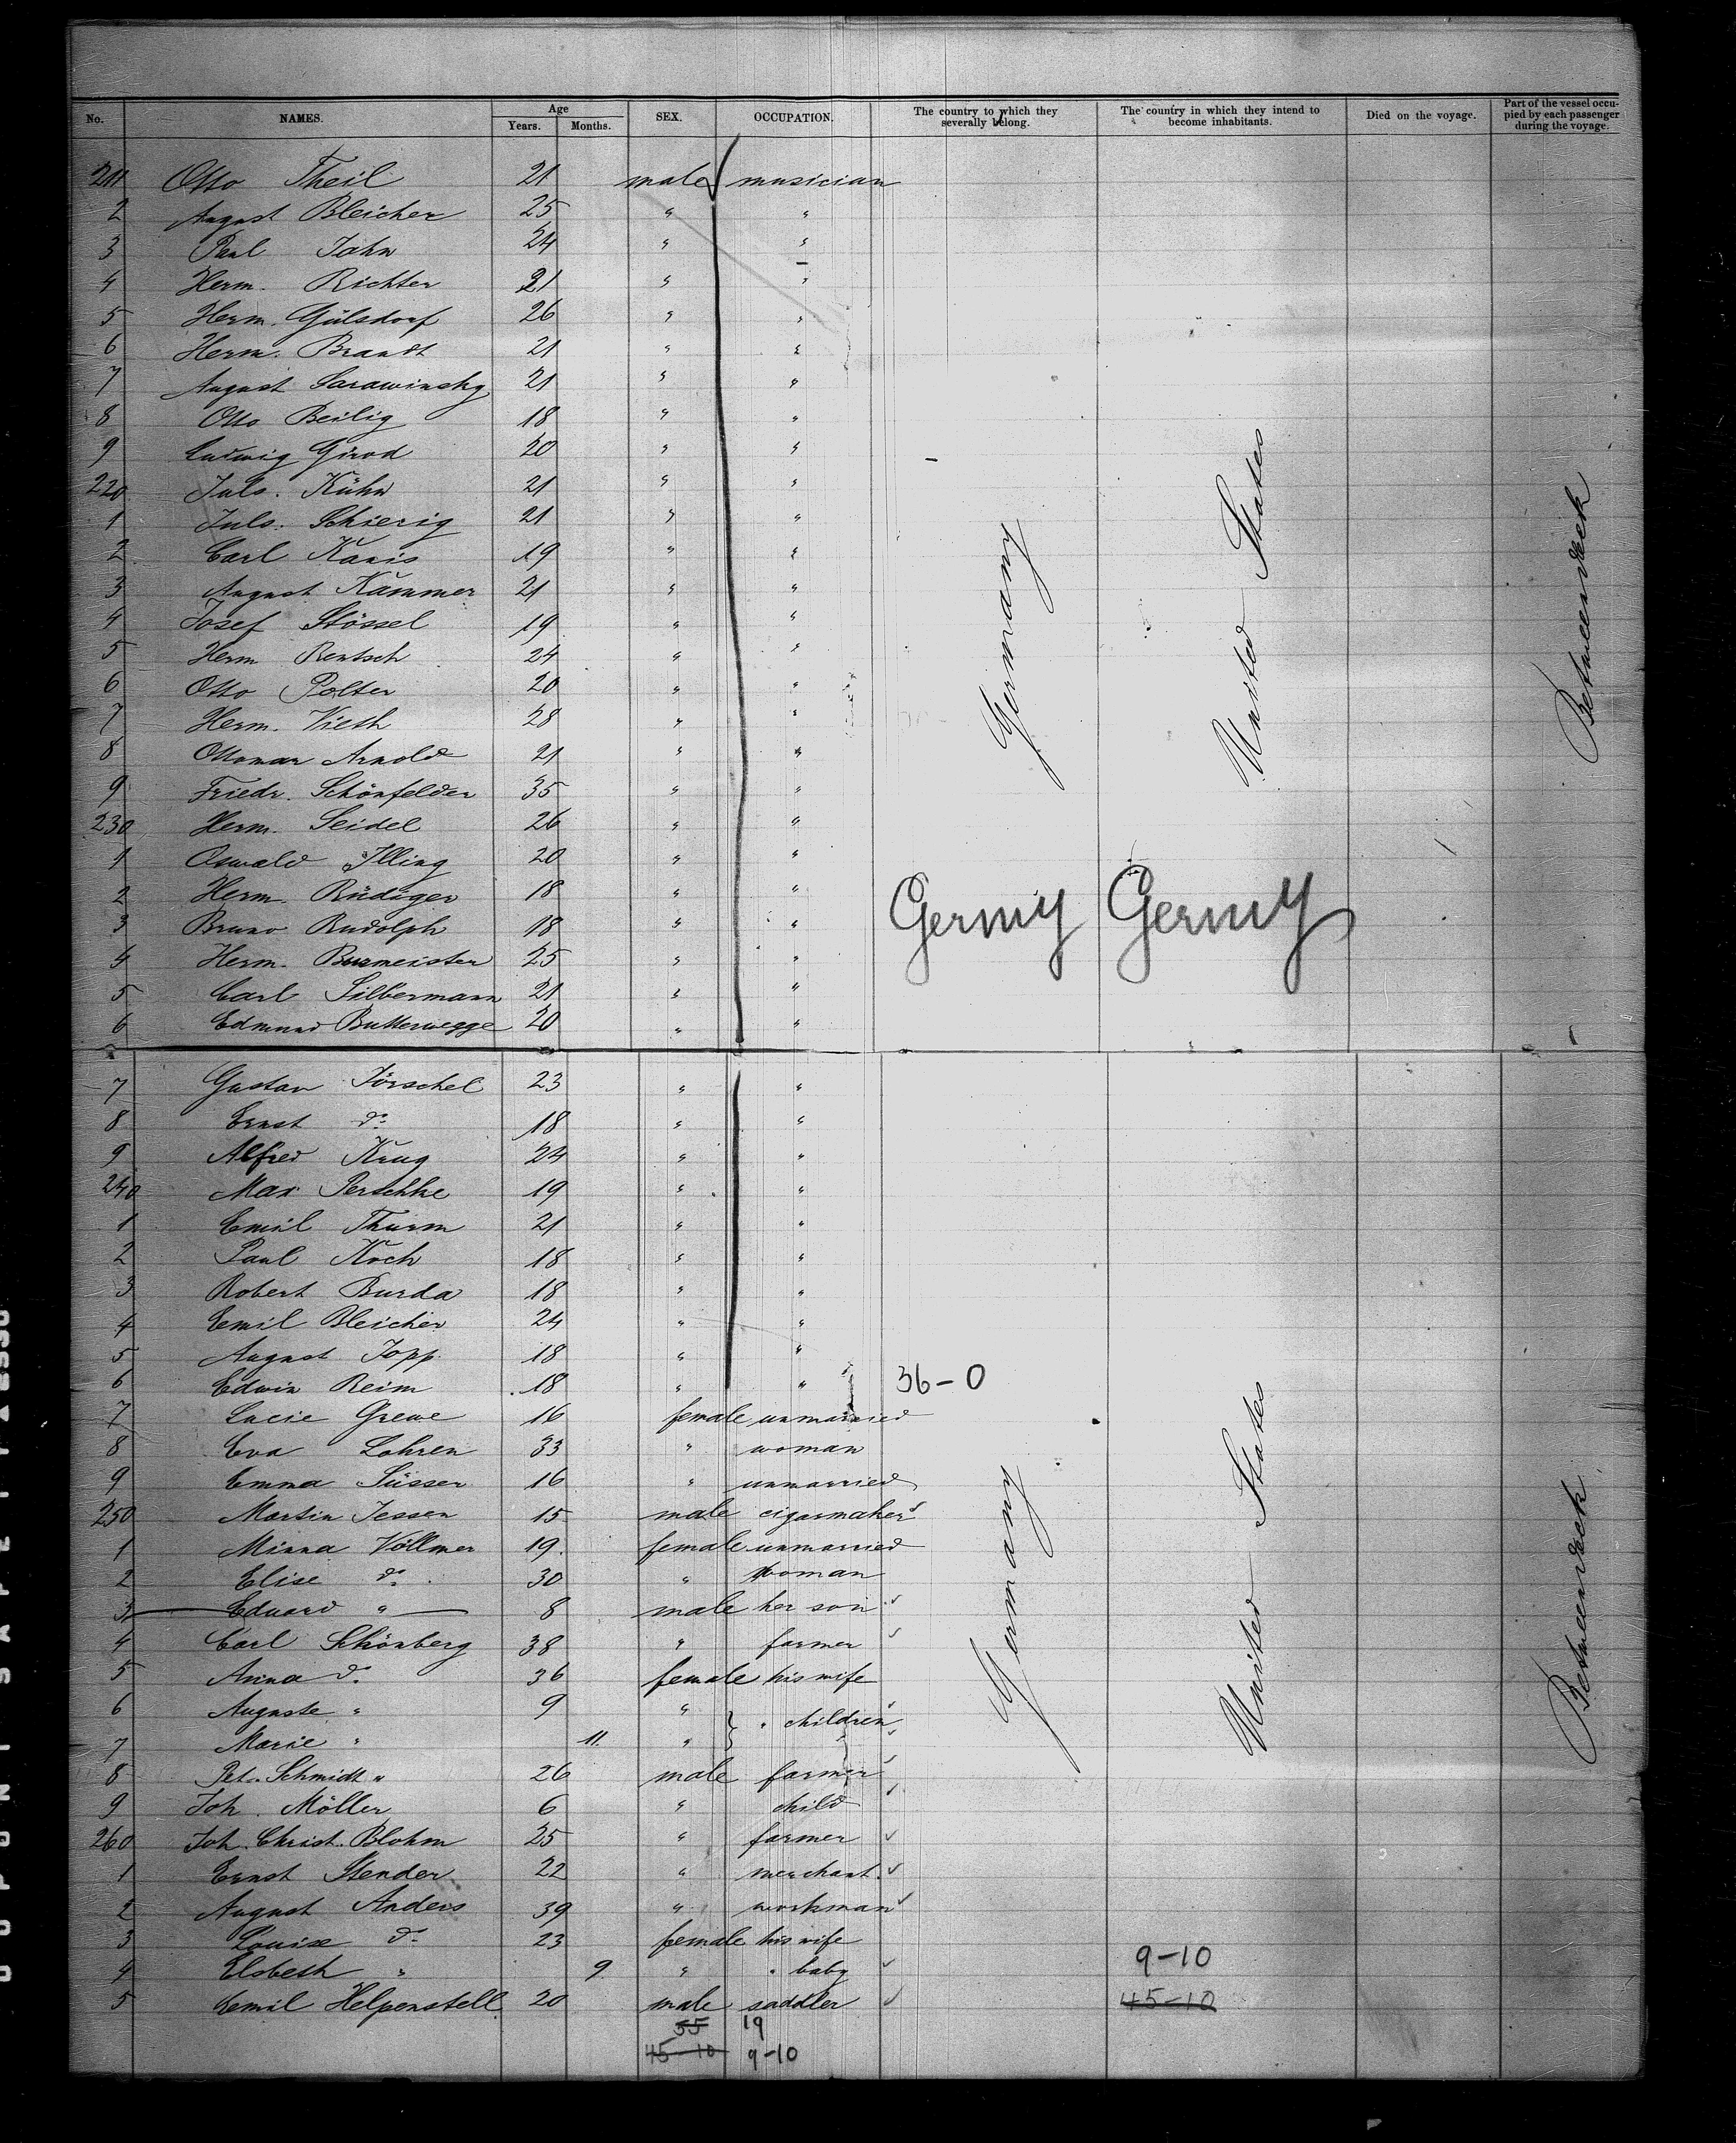 No. NAMES. Age Years. Months. SEX. OCCUPATION. The country to which they severally belong. The country in which they intend to become inhabitants. Died on the voyage. Part of the vessel occupied by each passenger during the voyage.
211 Otto Theil 21 male musician
2 August Bleicher 25 " "
3 Paul Jahn 24 " "
4 Herm. Richter 21 " "
5 Herm. Gülsdorf 26 " "
6 Herm. Brandt 21 " "
7 August Sarawinsky 21 " "
8 Otto Beilig 18 " "
9 Ludwig Girod 20 " "
220 Juls. Kühn 21 " "
1 Juls. Schierig 21 " "
2 Carl Kanis 19 " "
3 August Kammer 21 " "
4 Josef Stössel 19 " "
5 Herm Rentsch 24 " "
6 Otto Polter 20 " "
7 Herm. Vieth 28 " "
8 Ottomar Arnold 21 " "
9 Friedr. Schönfelder 35 " "
230 Herm. Seidel 26 " "
1 Oswald Illing 20 " "
2 Herm. Rüdiger 18 " "
3 Bruno Rudolph 18 " "
4 Herm. Burmeister 25 " "
5 Carl Silbermann 21 " "
6 Edmund Butterwegge 20 " "
Germany
United States
Betweendeck
Germy Germy
7 Gustav Jörschel 23 " "
8 Ernst do 18 " "
9 Alfred Krug 24 " "
240 Max Perschke 19 " "
1 Emil Thurm 21 " "
2 Paul Koch 18 " "
3 Robert Burda 18 " "
4 Emil Bleicher 24 " "
5 August Jopp. 18 " "
6 Edwin Reim 18 " " 36-0
7 Lucie Grewe 16 female unmarried
8 Eva Lohren 33 " woman
9 Emma Süsser 16 " unmarried
250 Martin Jessen 15 male cigarmaker
1 Minna Vollmer 19. female unmarried
2 Elise do 30 " woman
3 Eduard " 8 male her son
4 Carl Schönberg 38 " farmer
5 Anna do 36 female his wife
6 Auguste " 9 " } " children
7 Marie " 11. "
8 Pet. Schmidt " 26 male farmer
9 Joh. Möller 6 " child
260 Joh. Christ. Blohm 25 " farmer
1 Ernst Stender 22 " merchant.
2 August Anders 39 " workman
3 Louise do 23 female his wife
4 Elsbeth " 9 " " baby 9-10
5 Emil Helpenstell 20 male saddler 45-10
Germany
United States
Betweendeck
55 19
45-10 9-10